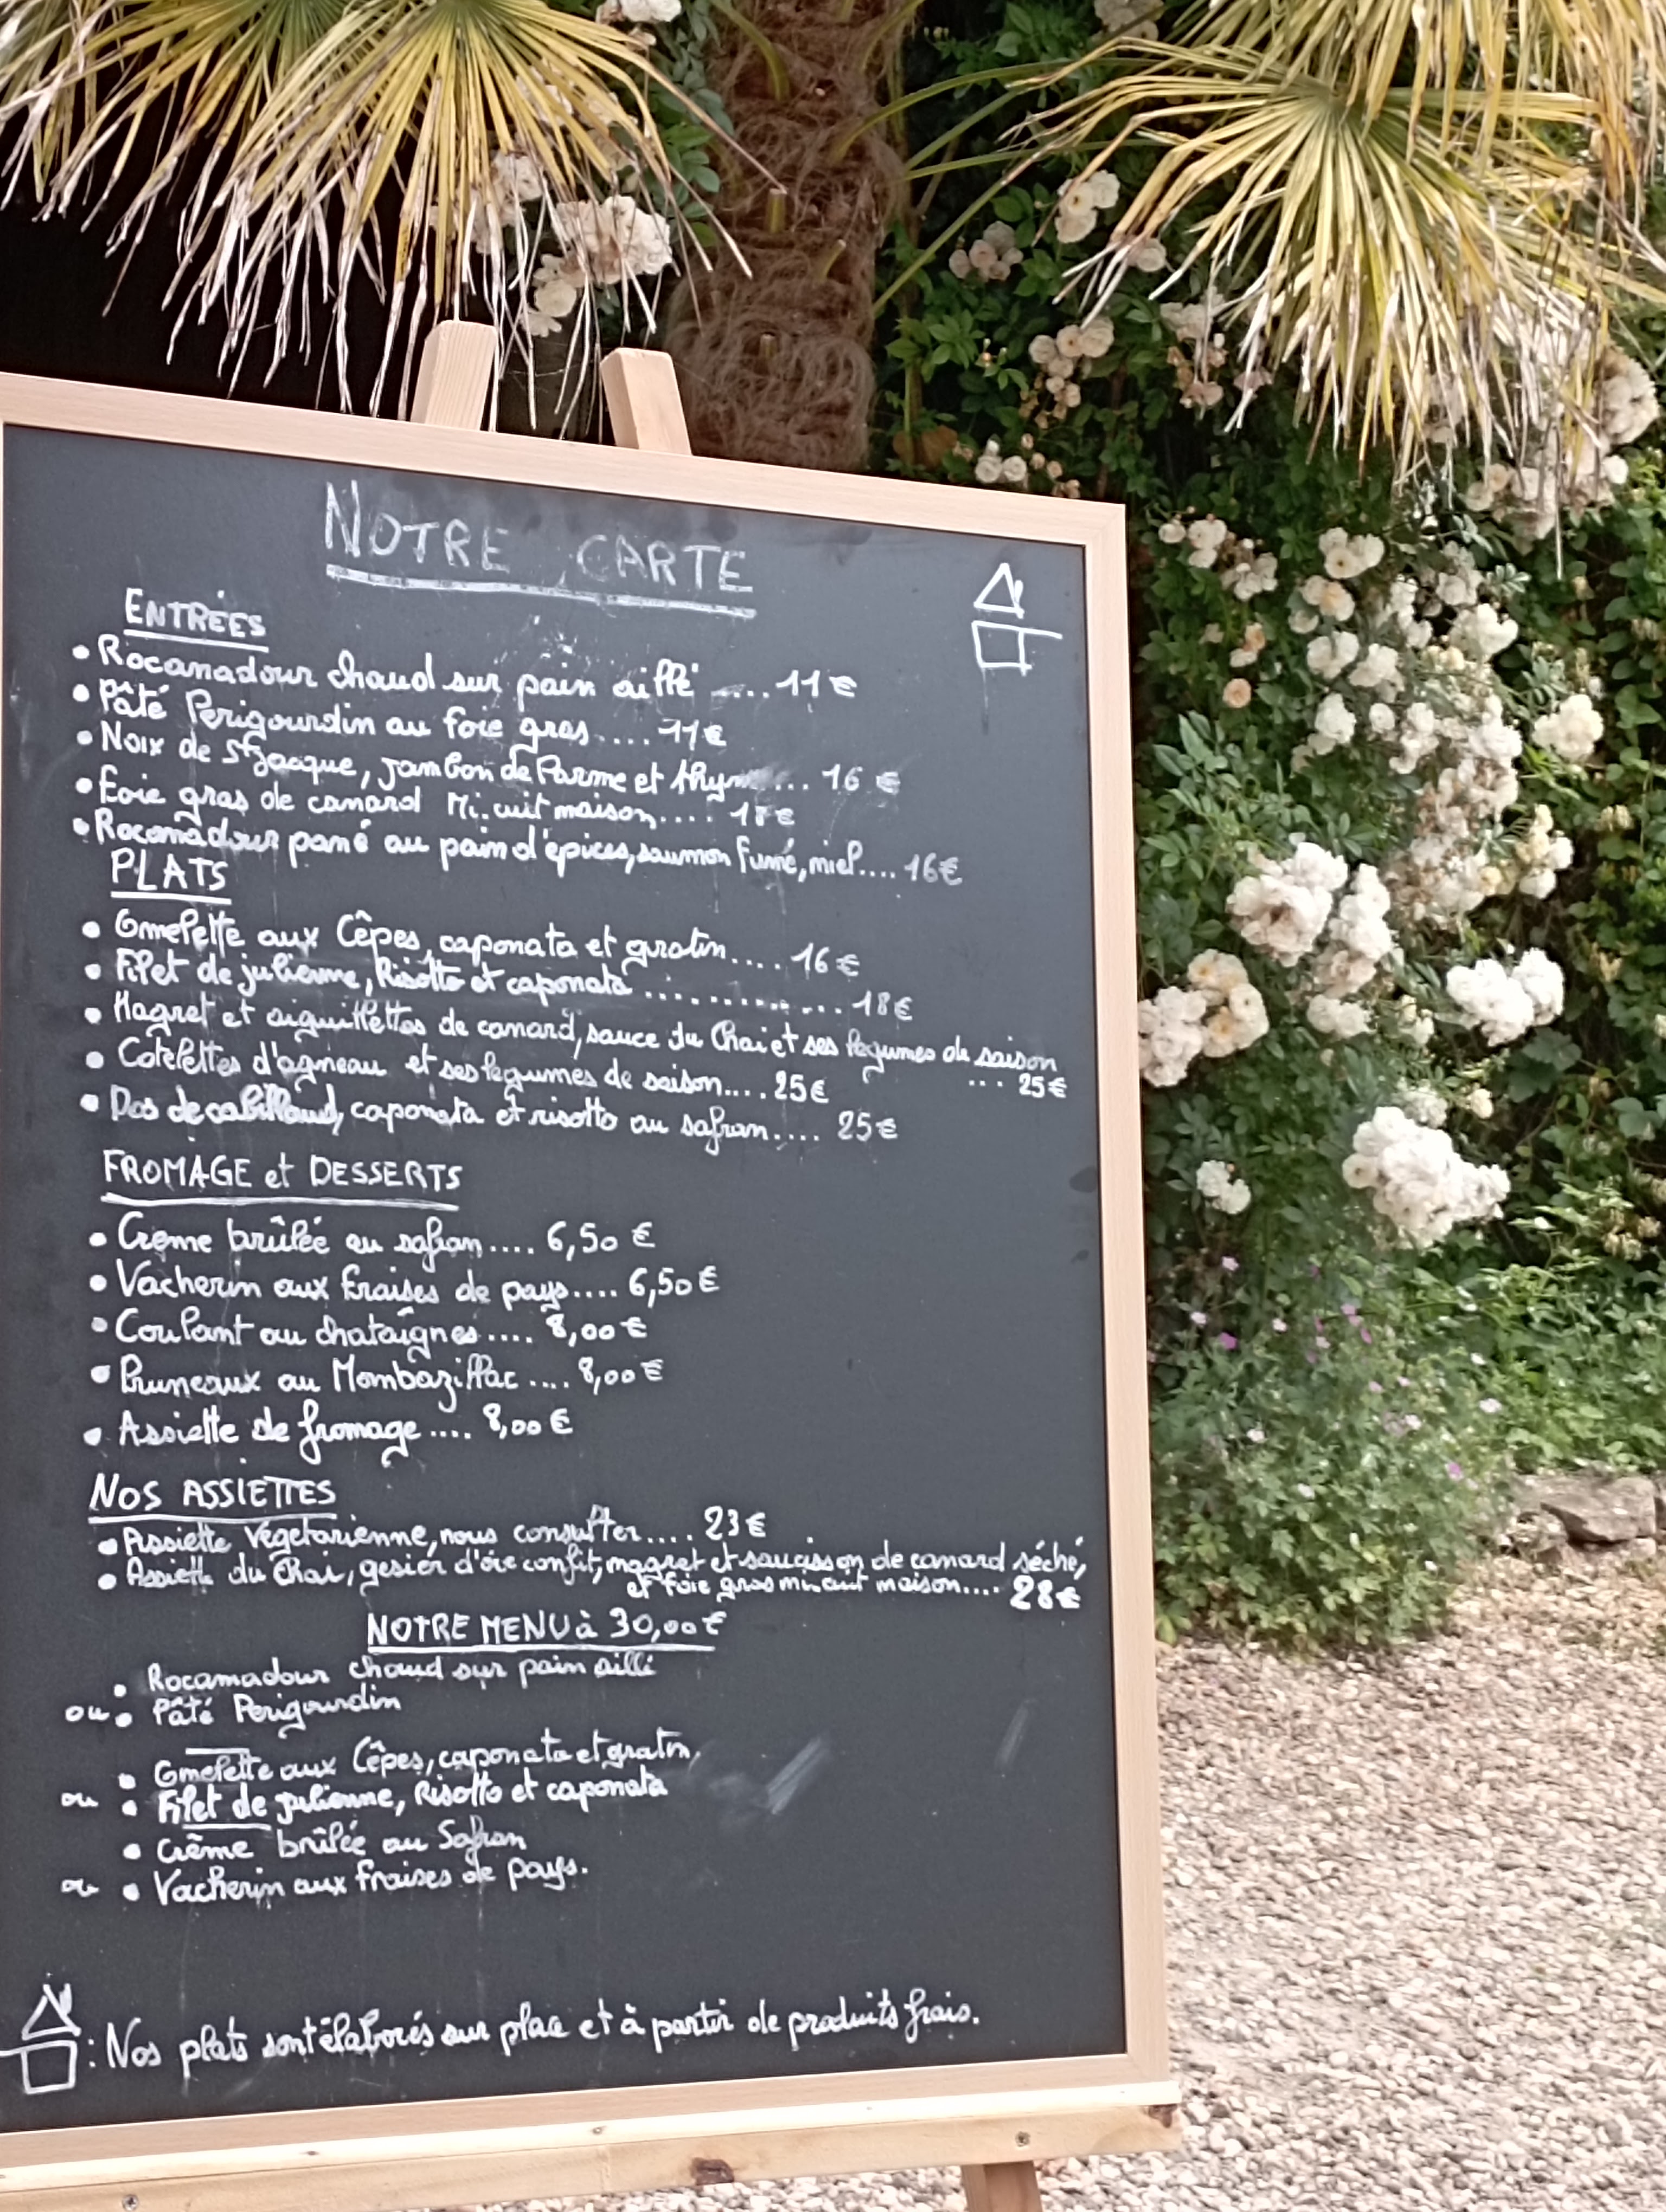 NOTRE CARTE
ENTRÉES
• Rocamadour chaud sur pain aillé .... 11€
• Pâté Perigourdin au foie gras .... 11€
• Noix de St Jacque, jambon de Parme et thym ... 16 €
• Foie gras de canard Mi.cuit maison .... 18€
• Rocamadour pané au pain d'épices, saumon fumé, miel .... 16€
PLATS
• Omelette aux Cêpes, caponata et gratin .... 16€
• Filet de julienne, Risotto et caponata .............. 18€
• Magret et aiguillettes de canard, sauce du Chai et ses légumes de saison
... 25€
• Cotelettes d'agneau et ses legumes de saison .... 25€
• Dos de cabillaud, caponata et risotto au safran .... 25€
FROMAGE et DESSERTS
• Crème brûlée au safran .... 6,50 €
• Vacherin aux fraises de pays .... 6,50€
• Coulant au chataîgnes .... 8,00€
• Pruneaux au Mombazillac .... 8,00€
• Assiette de fromage .... 8,00€
NOS ASSIETTES
• Assiette Végetarienne, nous consulter .... 23€
• Assiette du Chai, gesier d'oie confit, magret et saucisson de canard séché,
et foie gras mi.cuit maison .... 28€
NOTRE MENU à 30,00€
• Rocamadour chaud sur pain aillé
ou • Pâté Perigourdin
• Omelette aux Cêpes, caponata et gratin,
ou • Filet de julienne, Risotto et caponata
• Crème brûlée au Safran
ou • Vacherin aux fraises de pays.
: Nos plats sont élaborés sur place et à partir de produits frais.